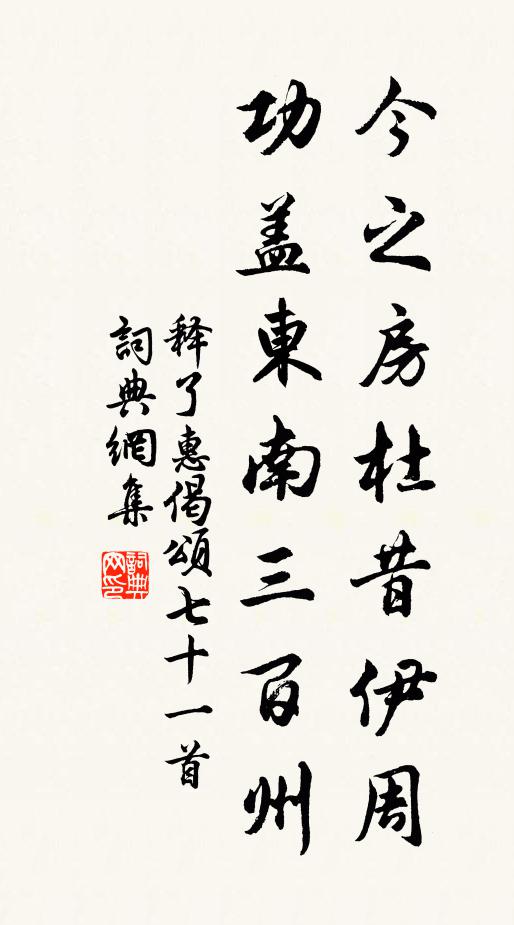 今之房杜昔伊周
功盖東南三百州
释了惠偈頌七十一首
詞典網集
詞典網印